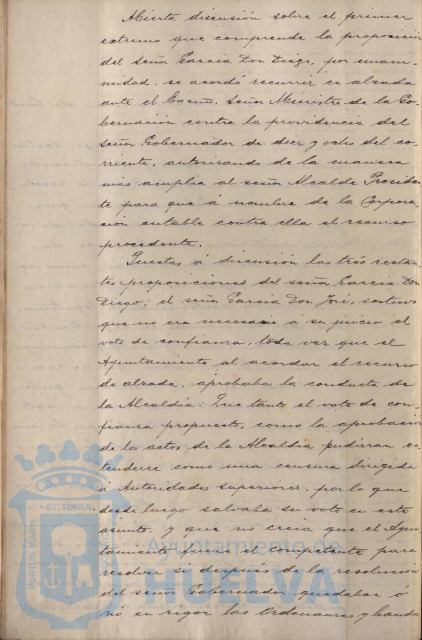 Abierta discusión sobre el primer
extremo que comprende la proposición
del señor García Don Diego, por unani-
midad, se acordó recurrir en alzada
ante el Excmo. Señor Ministro de la Go-
bernación contra la providencia del
señor Gobernador de diez y ocho del co-
rriente, autorizando de la manera
mas amplia al señor Alcalde Presiden-
te para que á nombre de la Corpora-
ción entable contra ella el recurso
procedente.
Puestas á discusión las tres restan-
tes proposiciones del señor García Don
Diego; el señor García Don José, sostuvo
que no era necesario á su juicio el
voto de confianza, toda vez que el
Ayuntamiento al acordar el recurso
de alzada, aprobaba la conducta de
la Alcaldía: Que tanto el voto de con-
fianza propuesto, como la aprobación
de los actos de la Alcaldía pudieran en-
tenderse como una censura dirigida
á Autoridades superiores, por lo que
desde luego salvaba su voto en este
asunto, y que no creia que el Ayun-
tamiento fuese el competente para
resolver si después de la resolución
del señor Gobernador quedaban ó
nó en vigor las Ordenanzas y bandos
PORTUS MARIS ET TERRAE
Ayuntamiento de
HUELVA